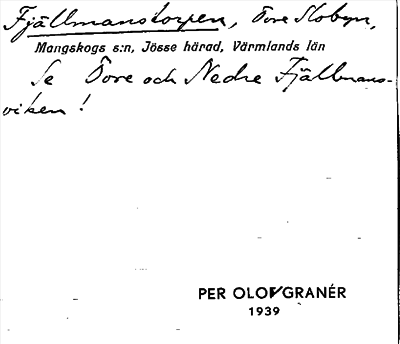 Fjällmanstorpen, Övre Slobyn,
Mangskogs s:n, Jösse härad, Värmlands län
Se Övre och Nedre Fjällmans-
viken!
PER OLOF GRANÉR
1939